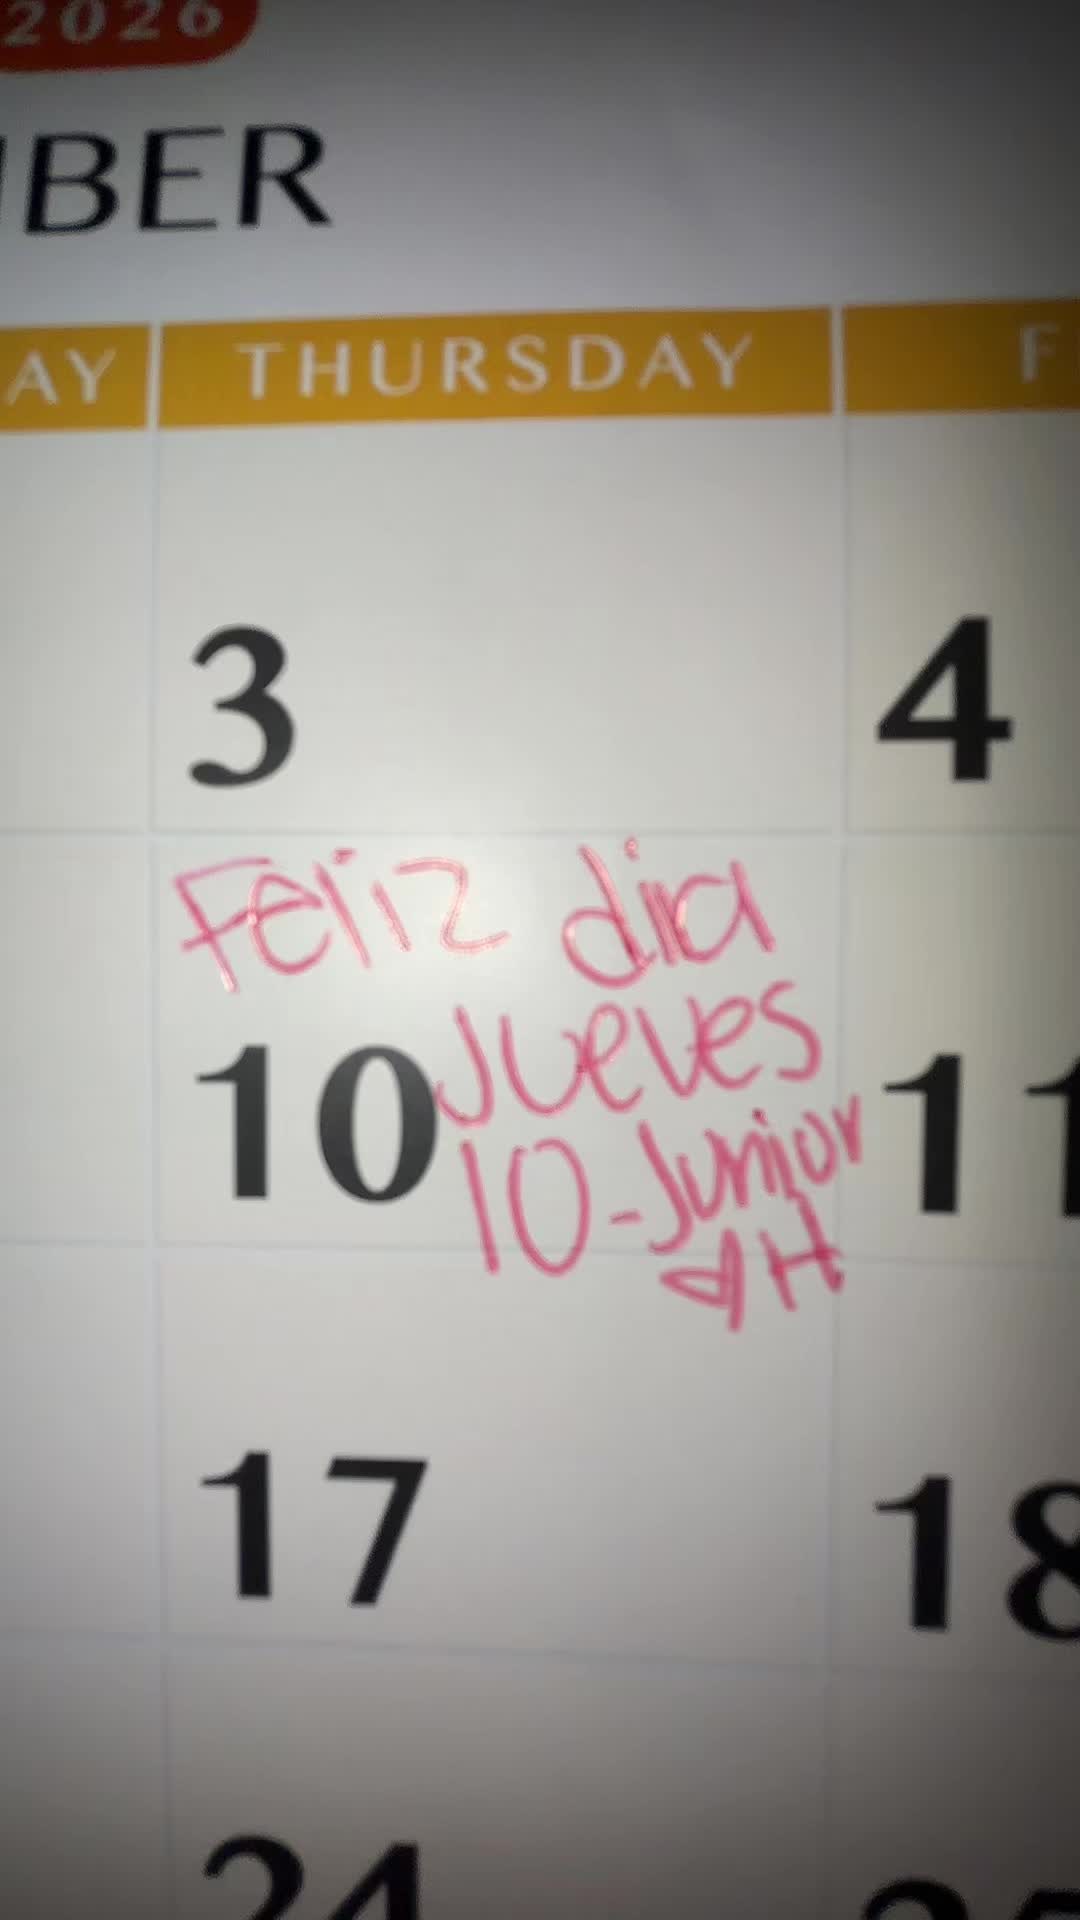 2026
BER
AY THURSDAY F
3 4
Feliz dia
Jueves
10 11
10-Junior
♡H
17 18
24 25